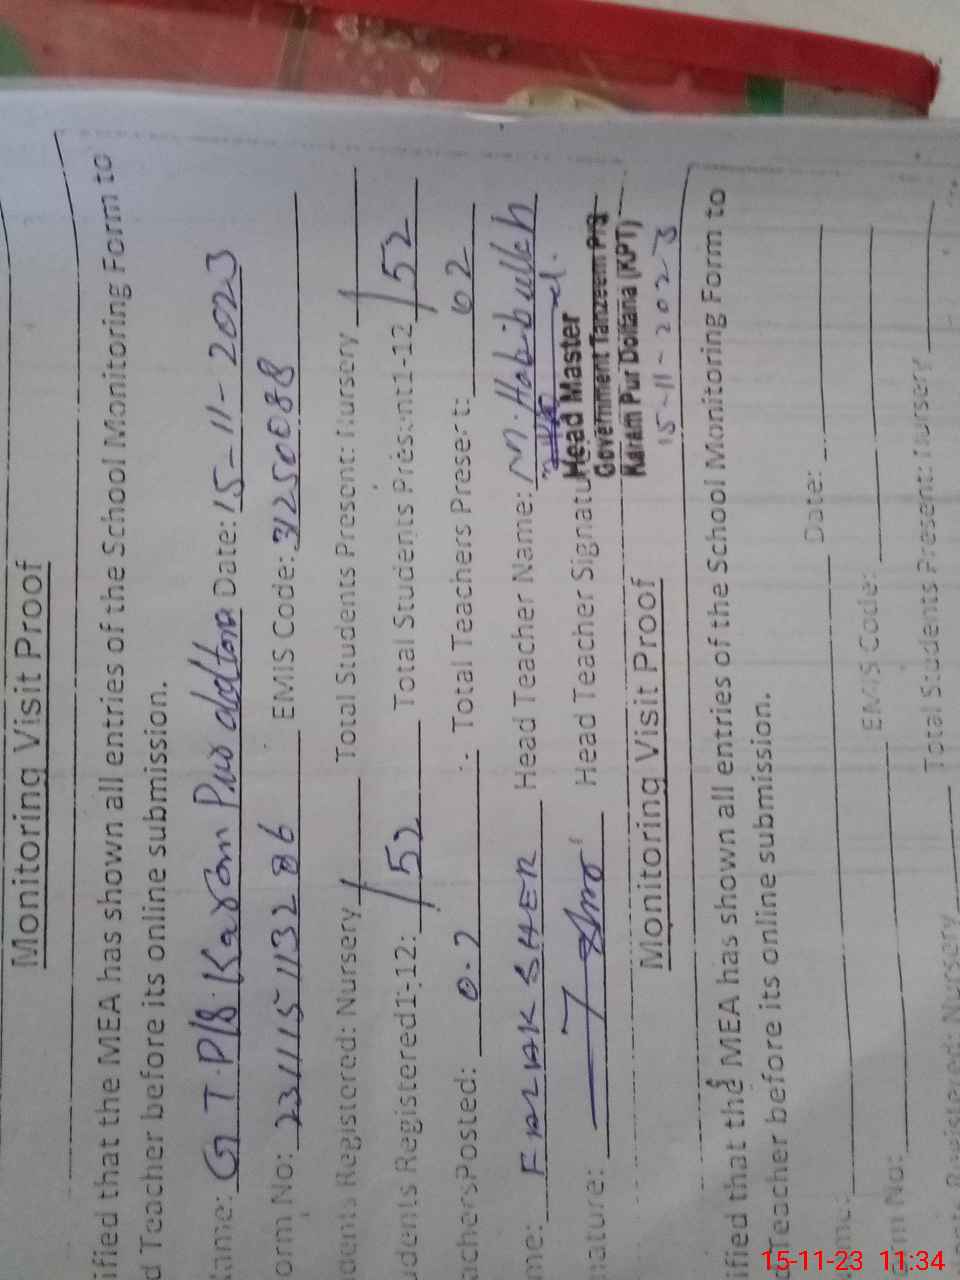 Monitoring Visit Proof
ified that the MEA has shown all entries of the School Monitoring Form to
d Teacher before its online submission.
Name: G T. P/S. Karam Pur doltana Date: 15-11-2023
orm No: 23111511 32 86 EMIS Code: 31250088
Registered: Nursery / Total Students Present: Nursery /
udents Registered 1-12: / 52 Total Students Present 1-12 / 52
achers Posted: 02 Total Teachers Present: 02
me: SHER Head Teacher Name: M. Habibullah
nature: Head Teacher Signatu
Head Master
Government Tanzeem P/S
Karam Pur Doltana (KPT)
15-11-2023
Monitoring Visit Proof
ified that the MEA has shown all entries of the School Monitoring Form to
d Teacher before its online submission.
ame: Date:
orm No: EMIS Code:
Registered: Nursery Total Students Present: Nursery
15-11-23 11:34